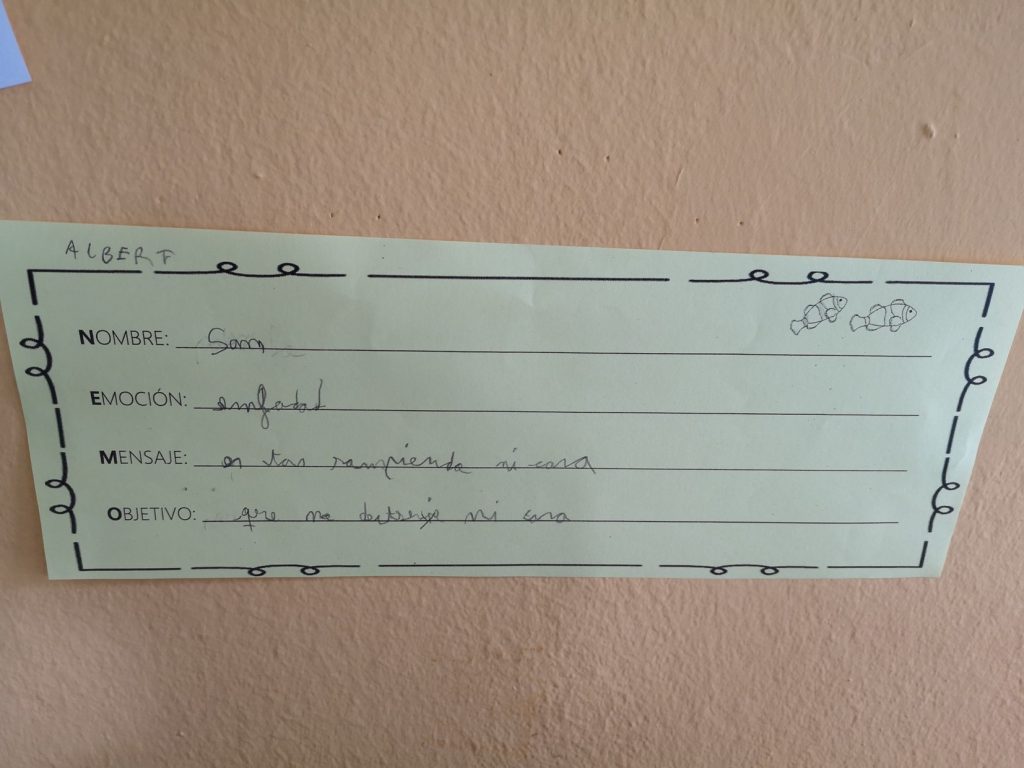 ALBERT
NOMBRE: Sam
EMOCIÓN: enfadad
MENSAJE: en tan rampienda mi casa
OBJETIVO: que no mi casa